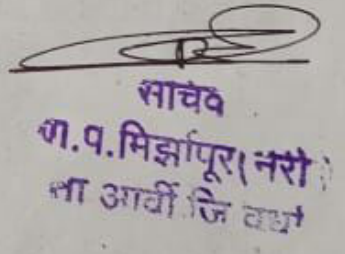 सचिव
ग्रा.प.मिर्झापूर(नेरी)
ता आर्वी जि वर्धा